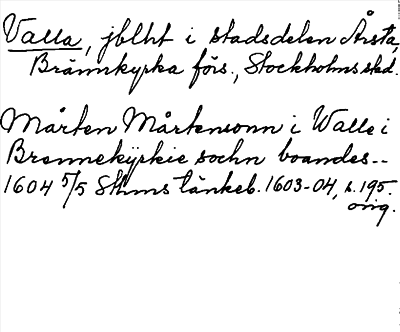 Valla, jblht i stadsdelen Årsta,
Brännkyrka förs., Stockholms sted.
Mårten Mårtensonn i Walle i
Brennekÿrkie sochn boandes--
1604 5/5 Sthms tänkeb. 1603-04, s. 195.
orig.